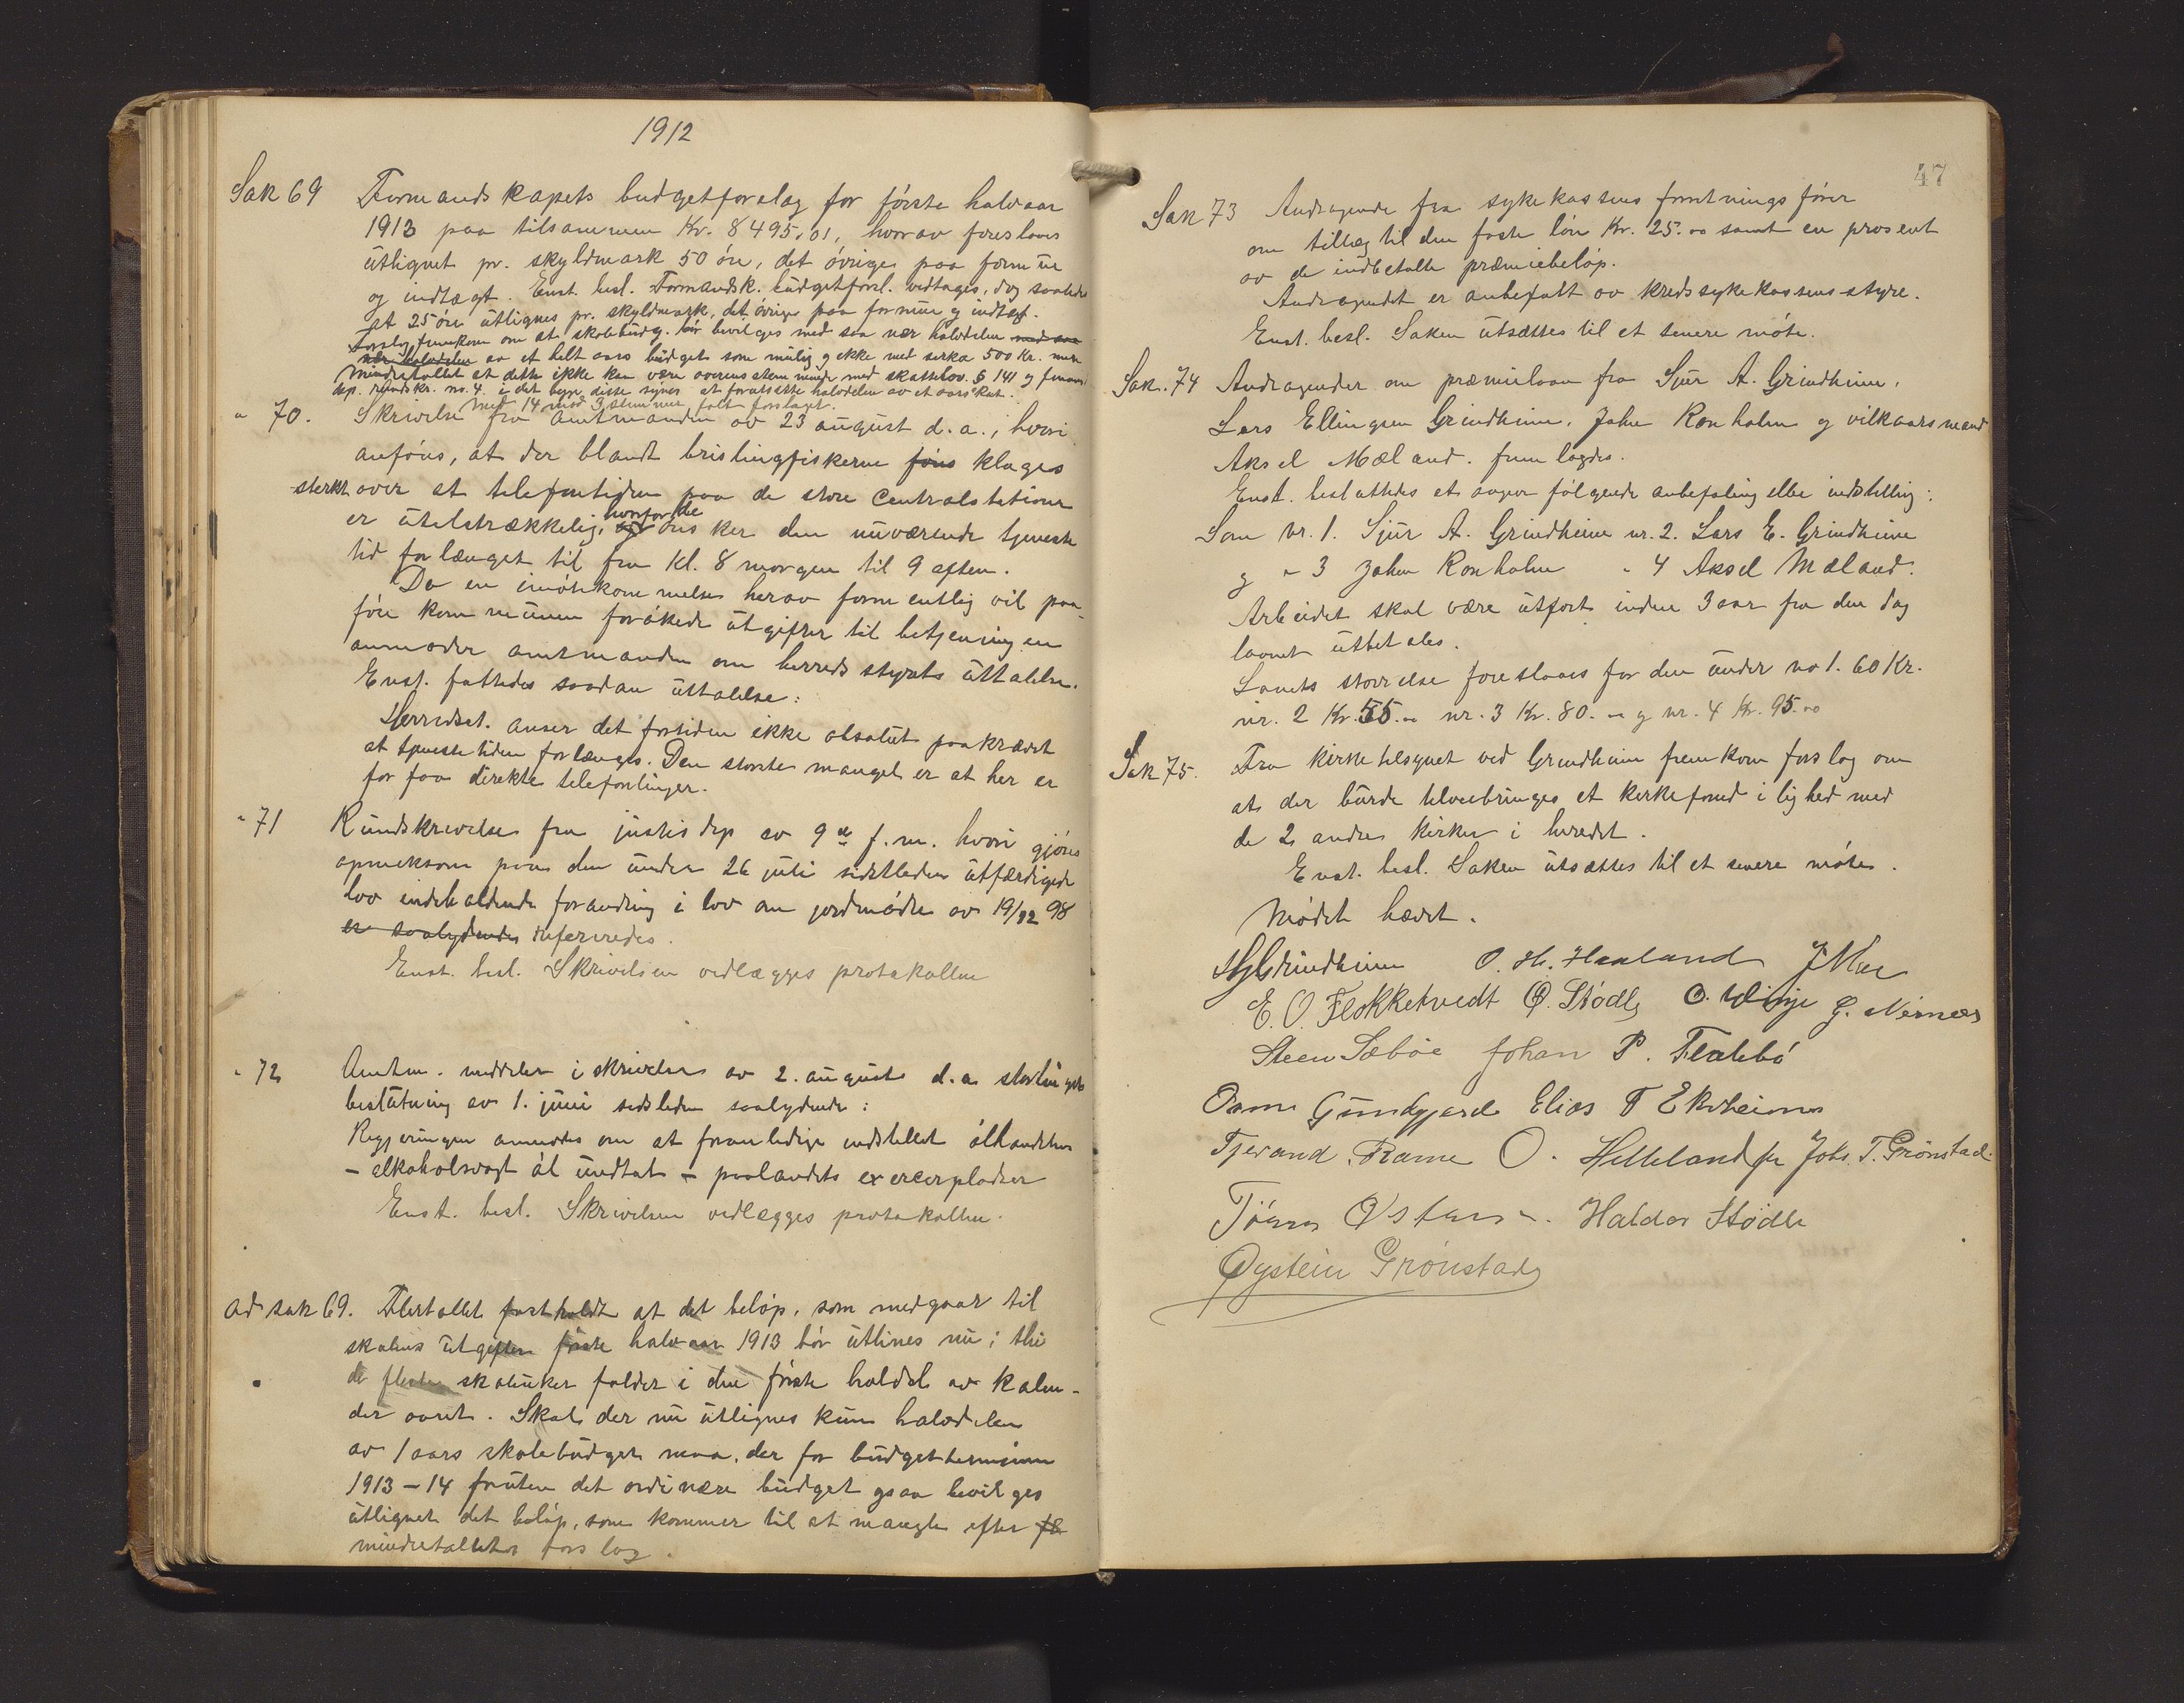 1912
Sak 69 Formandskapets budgetforslag for förste halvaar
1913 paa tilsammen Kr. 8495,01, hvorav foreslaaes
ütlignet pr. skyldmark 50 öre, det övrige paa formüe
og indtægt. Enst. besl. Formandsk. büdgetforsl. vedtages, dog saaledes
at 25 öre ütlignes pr. skyldmark, det övrige paa formüe og indtægt.
Forslag fremkom om at skolebüdg. bör bevilges med saa nær halvdelen med saa
nær halvdelen av et helt aars büdget som mülig og ikke med serka 500 Kr. mere
Mindretallet at dette ikke kan være overensstemmende med skattelov. § 141 og finans
dep. rundskr. no. 4. i det begge disse synes at forutsætte halvdelen av et aars skat.
Med 14 mod 3 stemmer falt forslaget.
" 70. Skrivelse fra amtmanden av 23 aügust d.a., hvori
anföres, at der blandt brislingfiskerne föres klages
sterkt over at telefontiden paa de store Centralstationer
er ütilstrækkelig, hvorfor de önsker den nüværende tjeneste
tid forlænget til fra Kl. 8 morgen til 9 aften.
Da en imötekommelse herav formentlig vil paa-
före kommünen forökede ütgifter til betjeningen
anmoder amtmanden om herredsstyrets üttalelse.
Enst. fattedes saadan üttalelse:
Herredsst. anser det fortiden ikke absolut paakrævet
at tjenestetiden forlænges. Den störste mangel er at her er
for faa direkte telefonlinjer.
" 71 Rundskrivelse fra jüstisdep av 9de f.m. hvori gjöres
opmerksom paa den ünder 26 jüli sidstleden ütfærdigede
lov indeholdende forandring i lov om jordmödre av 19/12 98
er saalydende refereredes.
Enst. besl. Skrivelsen vedlægges protokollen
" 72 Amtm. meddeler i skrivelse av 2. aügust d.a. stortingets
beslütning av 1. jüni sidsleden saalydende:
Regjeringen anmodes om at foranledige indstillet ölhandelen
– alkoholsvagt öl ündtat – paa landets exercerpladser
Enst. besl. Skrivelsen vedlægges protokollen.
Ad sak 69. Flertallet fastholdt at det belöp, som medgaar til
skolens ütgifter förste halvaar 1913 bör ütlines nü; thi
de fleste skoleüker falder i den förste halvdel av kalen-
der aaret. Skal der nü ütlignes kün halvdelen
av 1 aars skolebüdget maa, der for büdgetterminen
1913–14 foruten det ordinære büdget ogsaa bevilges
ütlignet det belöp, som kommer til at mangle efter fl
mindretallets forslag.
47
Sak 73 Andragende fra sykekassens forretningsförer
om tillæg til den faste lön Kr. 25.00 samt en prosent
av de indbetalte præmiebelöp.
Andragendet er anbefalt av kredssykekassens styre.
Enst. besl. Saken ütsættes til et senere möte.
Sak. 74 Andragender om præmielaan fra Sjür A. Grindheim,
Lars Ellingsen Grindheim, Jahn Ronholm og vilkaarsmand
Aksel Mæland. fremlagdes.
Enst. beslüttedes at avgive fölgende anbefaling eller indstilling:
Som nr. 1. Sjür A. Grindheim nr. 2. Lars E. Grindheim
og " 3 Jahn Ronholm " 4 Aksel Mæland.
Arbeidet skal være ütfört inden 3 aar fra den dag
laanet üttbetales.
Laanets störrelse foreslaaes for den ünder no 1. 60 Kr.
nr. 2 Kr. 55.00 nr. 3 Kr. 80.00 og nr. 4 Kr. 95.00
Sak 75. Fra kirketilsynet ved Grindheim fremkom forslag om
at der bürde tilveiebringes et kirkefond i lighed med
de 2 andre kirker i heredet.
Enst. besl. Saken ütsættes til et senere möte.
Mödet hævet.
Grindheim O. H. Haaland
E. O. Flokketvedt Ø. Stödle O. Vinje G. Nernæs
Steen Sæböe Johan P. Flatebö
Gündgjerde Elias T Ekrheim
Tjerand Rame O. Helleland Johs. T. Grönstad.
Tönnes Østensen. Haldor Stödle
Øystein Grönstad